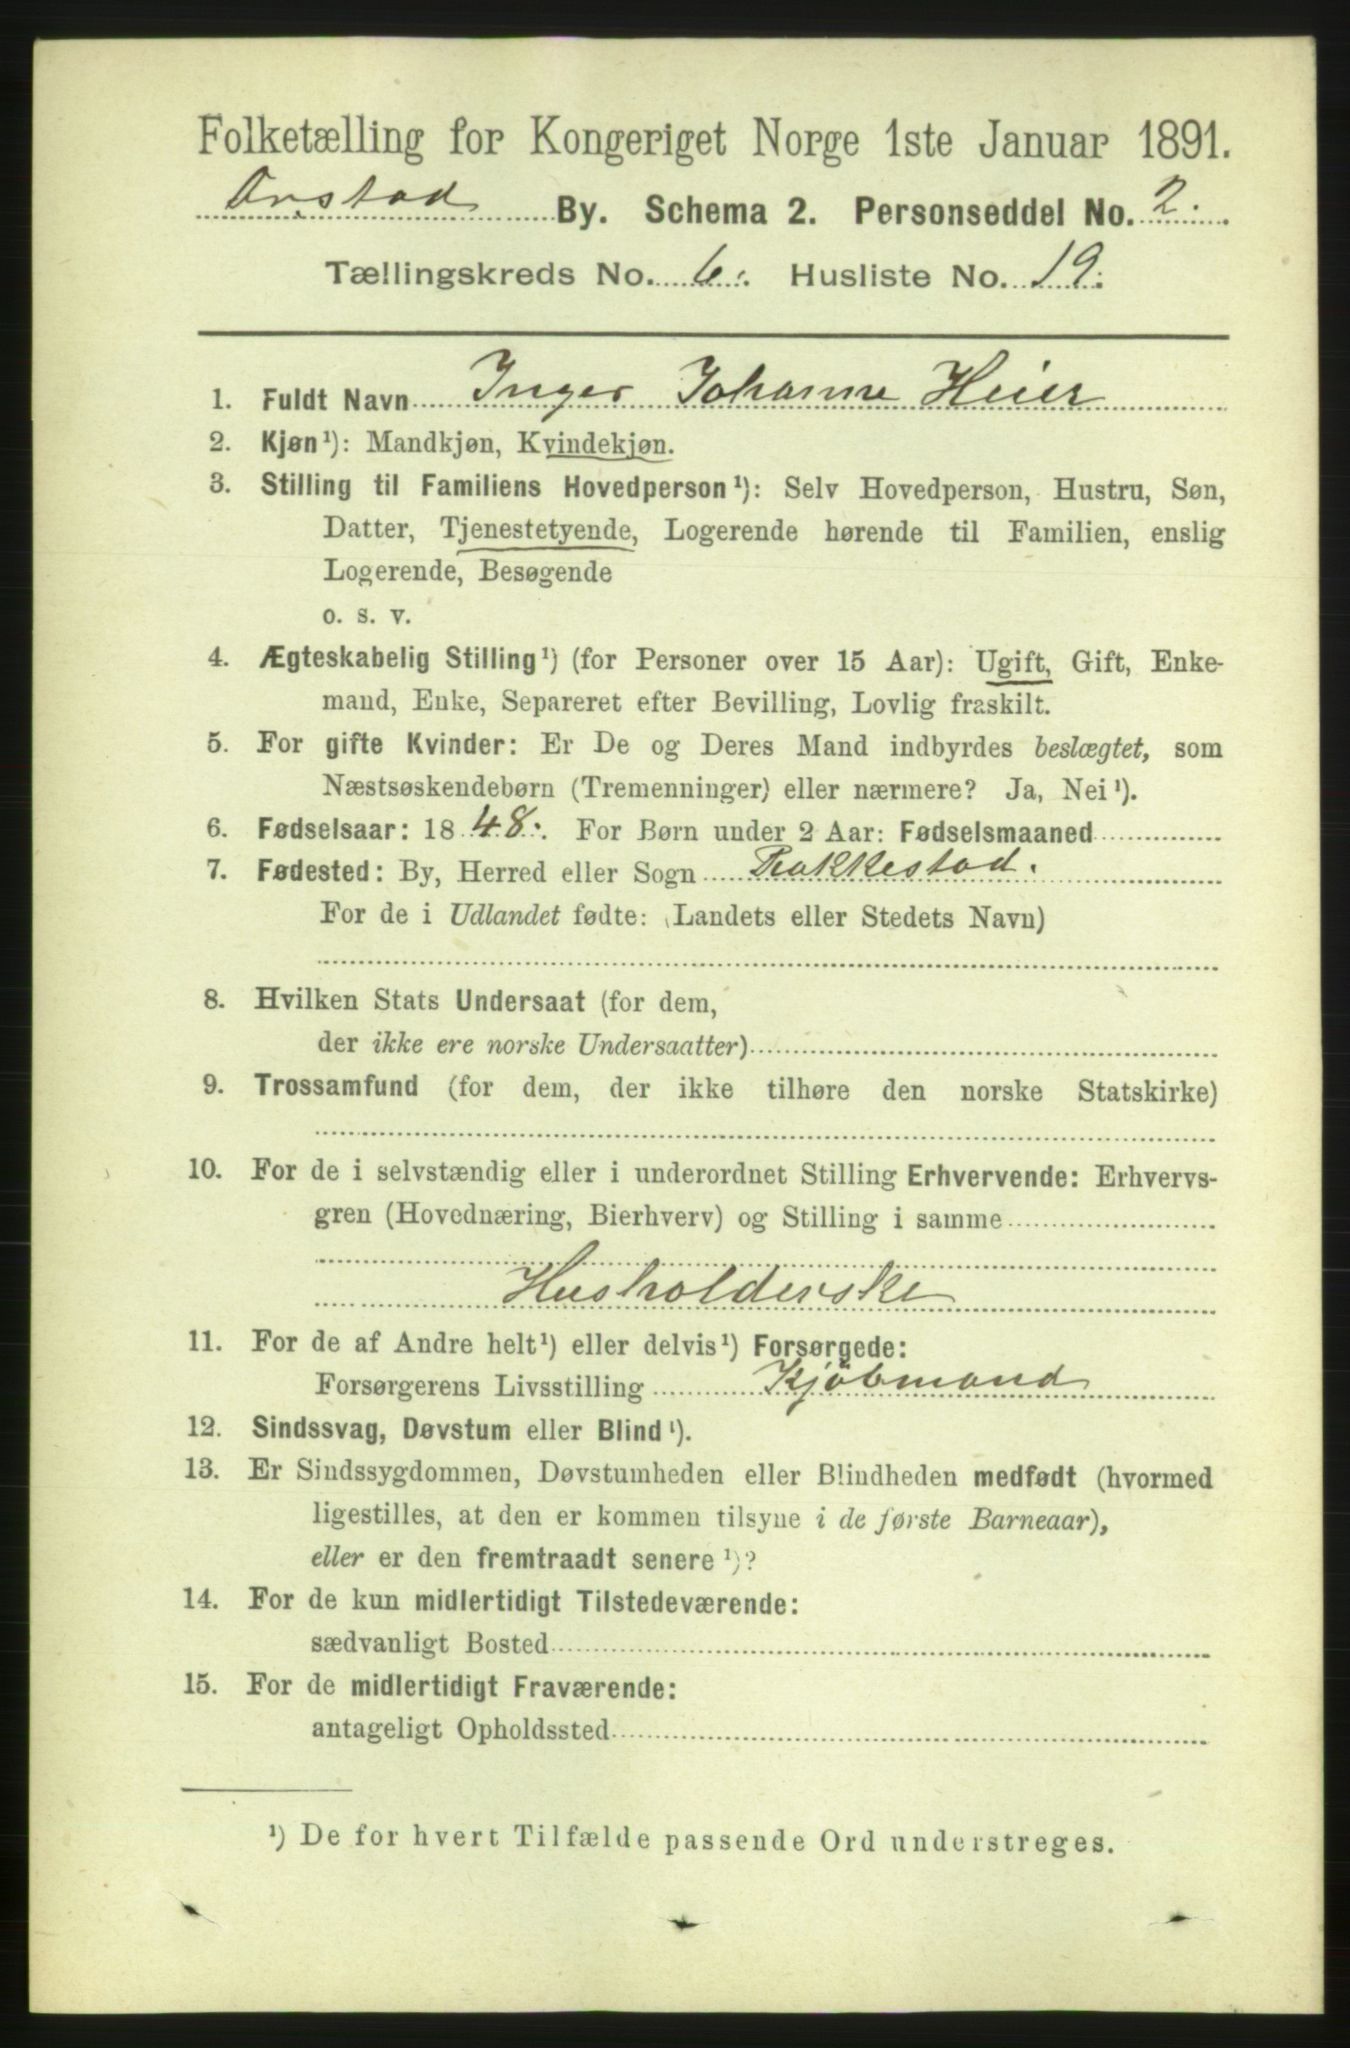 Folketælling for Kongeriget Norge 1ste Januar 1891.
By. Schema 2. Personseddel No. 2.
Tællingskreds No. 6. Husliste No. 19.
1. Fuldt Navn Inger Johanne Heier
2. Kjøn¹): Mandkjøn, Kvindekjøn.
3. Stilling til Familiens Hovedperson¹): Selv Hovedperson, Hustru, Søn,
Datter, Tjenestetyende, Logerende hørende til Familien, enslig
Logerende, Besøgende
o. s. v.
4. Ægteskabelig Stilling¹) (for Personer over 15 Aar): Ugift, Gift, Enke-
mand, Enke, Separeret efter Bevilling, Lovlig fraskilt.
5. For gifte Kvinder: Er De og Deres Mand indbyrdes beslægtet, som
Næstsøskendebørn (Tremenninger) eller nærmere? Ja, Nei¹).
6. Fødselsaar: 1848. For Børn under 2 Aar: Fødselsmaaned
7. Fødested: By, Herred eller Sogn Rakkestad.
For de i Udlandet fødte: (Landets eller Stedets Navn)
8. Hvilken Stats Undersaat (for dem,
der ikke ere norske Undersaatter)
9. Trossamfund (for dem, der ikke tilhøre den norske Statskirke)
10. For de i selvstændig eller i underordnet Stilling Erhvervende: Erhvervs-
gren (Hovednæring, Bierhverv) og Stilling i samme
Husholderske
11. For de af Andre helt¹) eller delvis¹) Forsørgede:
Forsørgerens Livsstilling Kjöbmand
12. Sindssvag, Døvstum eller Blind¹).
13. Er Sindssygdommen, Døvstumheden eller Blindheden medfødt (hvormed
ligestilles, at den er kommen tilsyne i de første Barneaar),
eller er den fremtraadt senere¹)?
14. For de kun midlertidigt Tilstedeværende:
sædvanligt Bosted
15. For de midlertidigt Fraværende:
antageligt Opholdssted
¹) De for hvert Tilfælde passende Ord understreges.